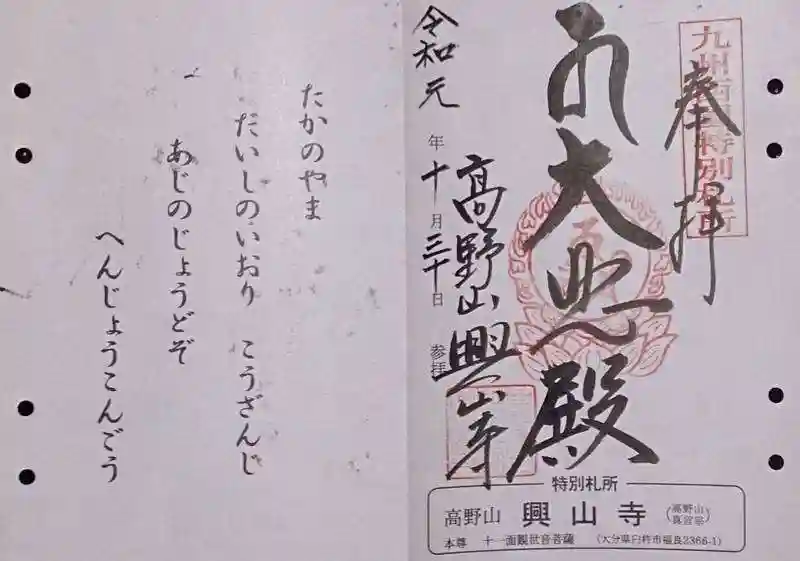 九州西国特別札所
奉拝
弘大悲殿
高野山興山寺
令和元年十月三十日参拝
特別札所
高野山 興山寺 (高野山真言宗)
本尊 十一面観世音菩薩 (大分県臼杵市福良2366-1)
たかのやま
だいしのいおり こうざんじ
あじのじょうどぞ
へんじょうこんごう